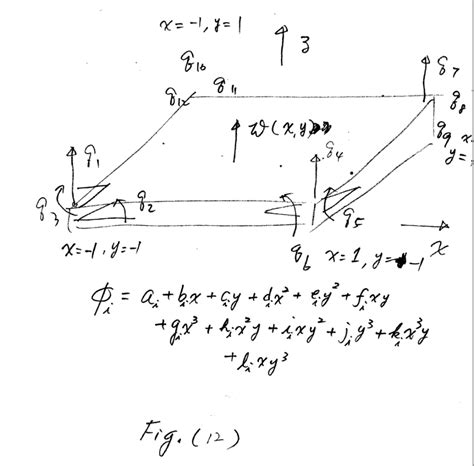 x = -1, y = 1
z
q₁₀
q₁₁
q₁₂
q₇
q₈
q₉
x
y =
w(x, y)
q₁
q₂
q₃
q₄
q₅
q₆
x = -1, y = -1
x = 1, y = -1
x
ϕᵢ = aᵢ + bᵢx + cᵢy + dᵢx² + eᵢy² + fᵢxy
+ gᵢx³ + hᵢx²y + iᵢxy² + jᵢy³ + kᵢx³y
+ lᵢxy³
Fig. (12)